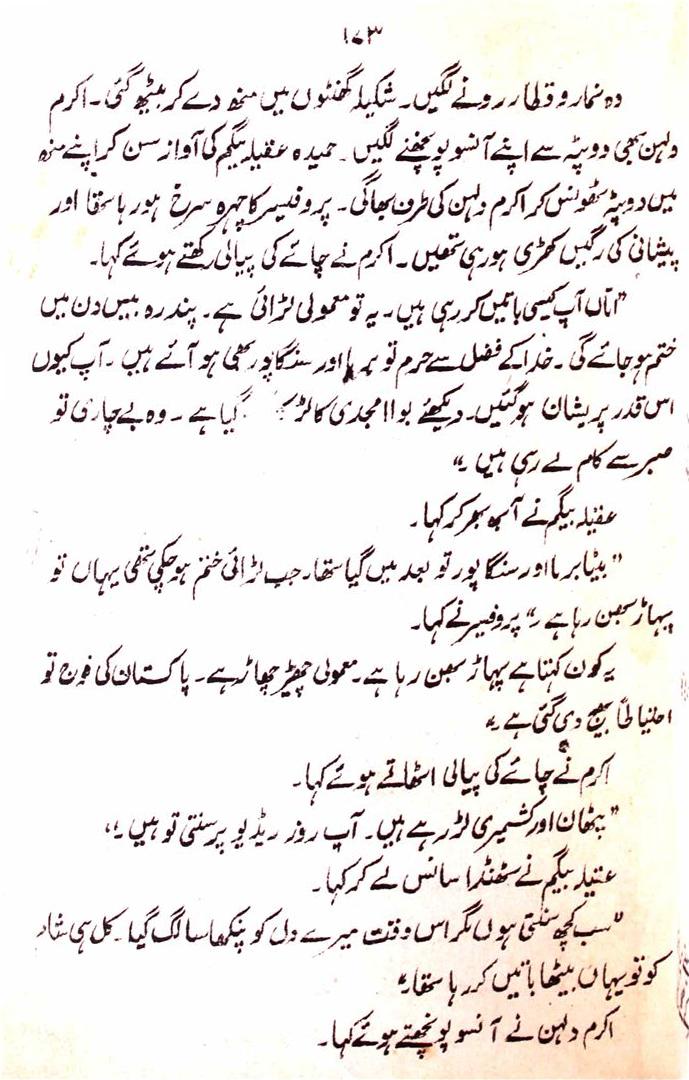 ۱۷۳
وہ نماروقطار رونے لگیں۔ شکیلہ گھٹنوں میں منھ دے کر بیٹھ گئی۔ اکرم
دلہن بھی دوپٹہ سے اپنے آنسو پونچھنے لگیں۔ حمیدہ عقیلہ بیگم کی آواز سن کر اپنے منہ
میں دوپٹہ ٹھونس کر اکرم دلہن کی طرف بھاگی۔ پروفیسر کا چہرہ سرخ ہو رہا تھا اور
پیشانی کی رگیں کھڑی ہو رہی تھیں۔ اکرم نے چائے کی پیالی رکھتے ہوئے کہا۔
"اماں آپ کیسی باتیں کر رہی ہیں۔ یہ تو معمولی لڑائی ہے۔ پندرہ بیس دن میں
ختم ہو جائے گی۔ خدا کے فضل سے خرم تو برما اور سنگاپور بھی ہو آئے ہیں۔ آپ کیوں
اس قدر پریشان ہو گئیں۔ دیکھئے بوا امجدی کا لڑکا گیا ہے۔ وہ بے چاری تو
صبر سے کام لے رہی ہیں۔"
عقیلہ بیگم نے آہ بھر کر کہا۔
"بیٹا برما اور سنگاپور تو بعد میں گیا تھا۔ جب لڑائی ختم ہو چکی تھی یہاں تو
پہاڑ بھن رہا ہے۔" پروفیسر نے کہا۔
یہ کون کہتا ہے پہاڑ بھن رہا ہے۔ معمولی چھیڑ چھاڑ ہے۔ پاکستان کی فوج تو
احتیاطاً بھیج دی گئی ہے۔"
اکرم نے چائے کی پیالی اٹھاتے ہوئے کہا۔
"پٹھان اور کشمیری لڑ رہے ہیں۔ آپ روز ریڈیو پر سنتی تو ہیں۔"
عقیلہ بیگم نے ٹھنڈا سانس لے کر کہا۔
"سب کچھ سنتی ہوں مگر اس وقت میرے دل کو پنکھا سا لگ گیا۔ کل ہی شام
کو تو یہاں بیٹھا باتیں کر رہا تھا۔"
اکرم دلہن نے آنسو پونچھتے ہوئے کہا۔